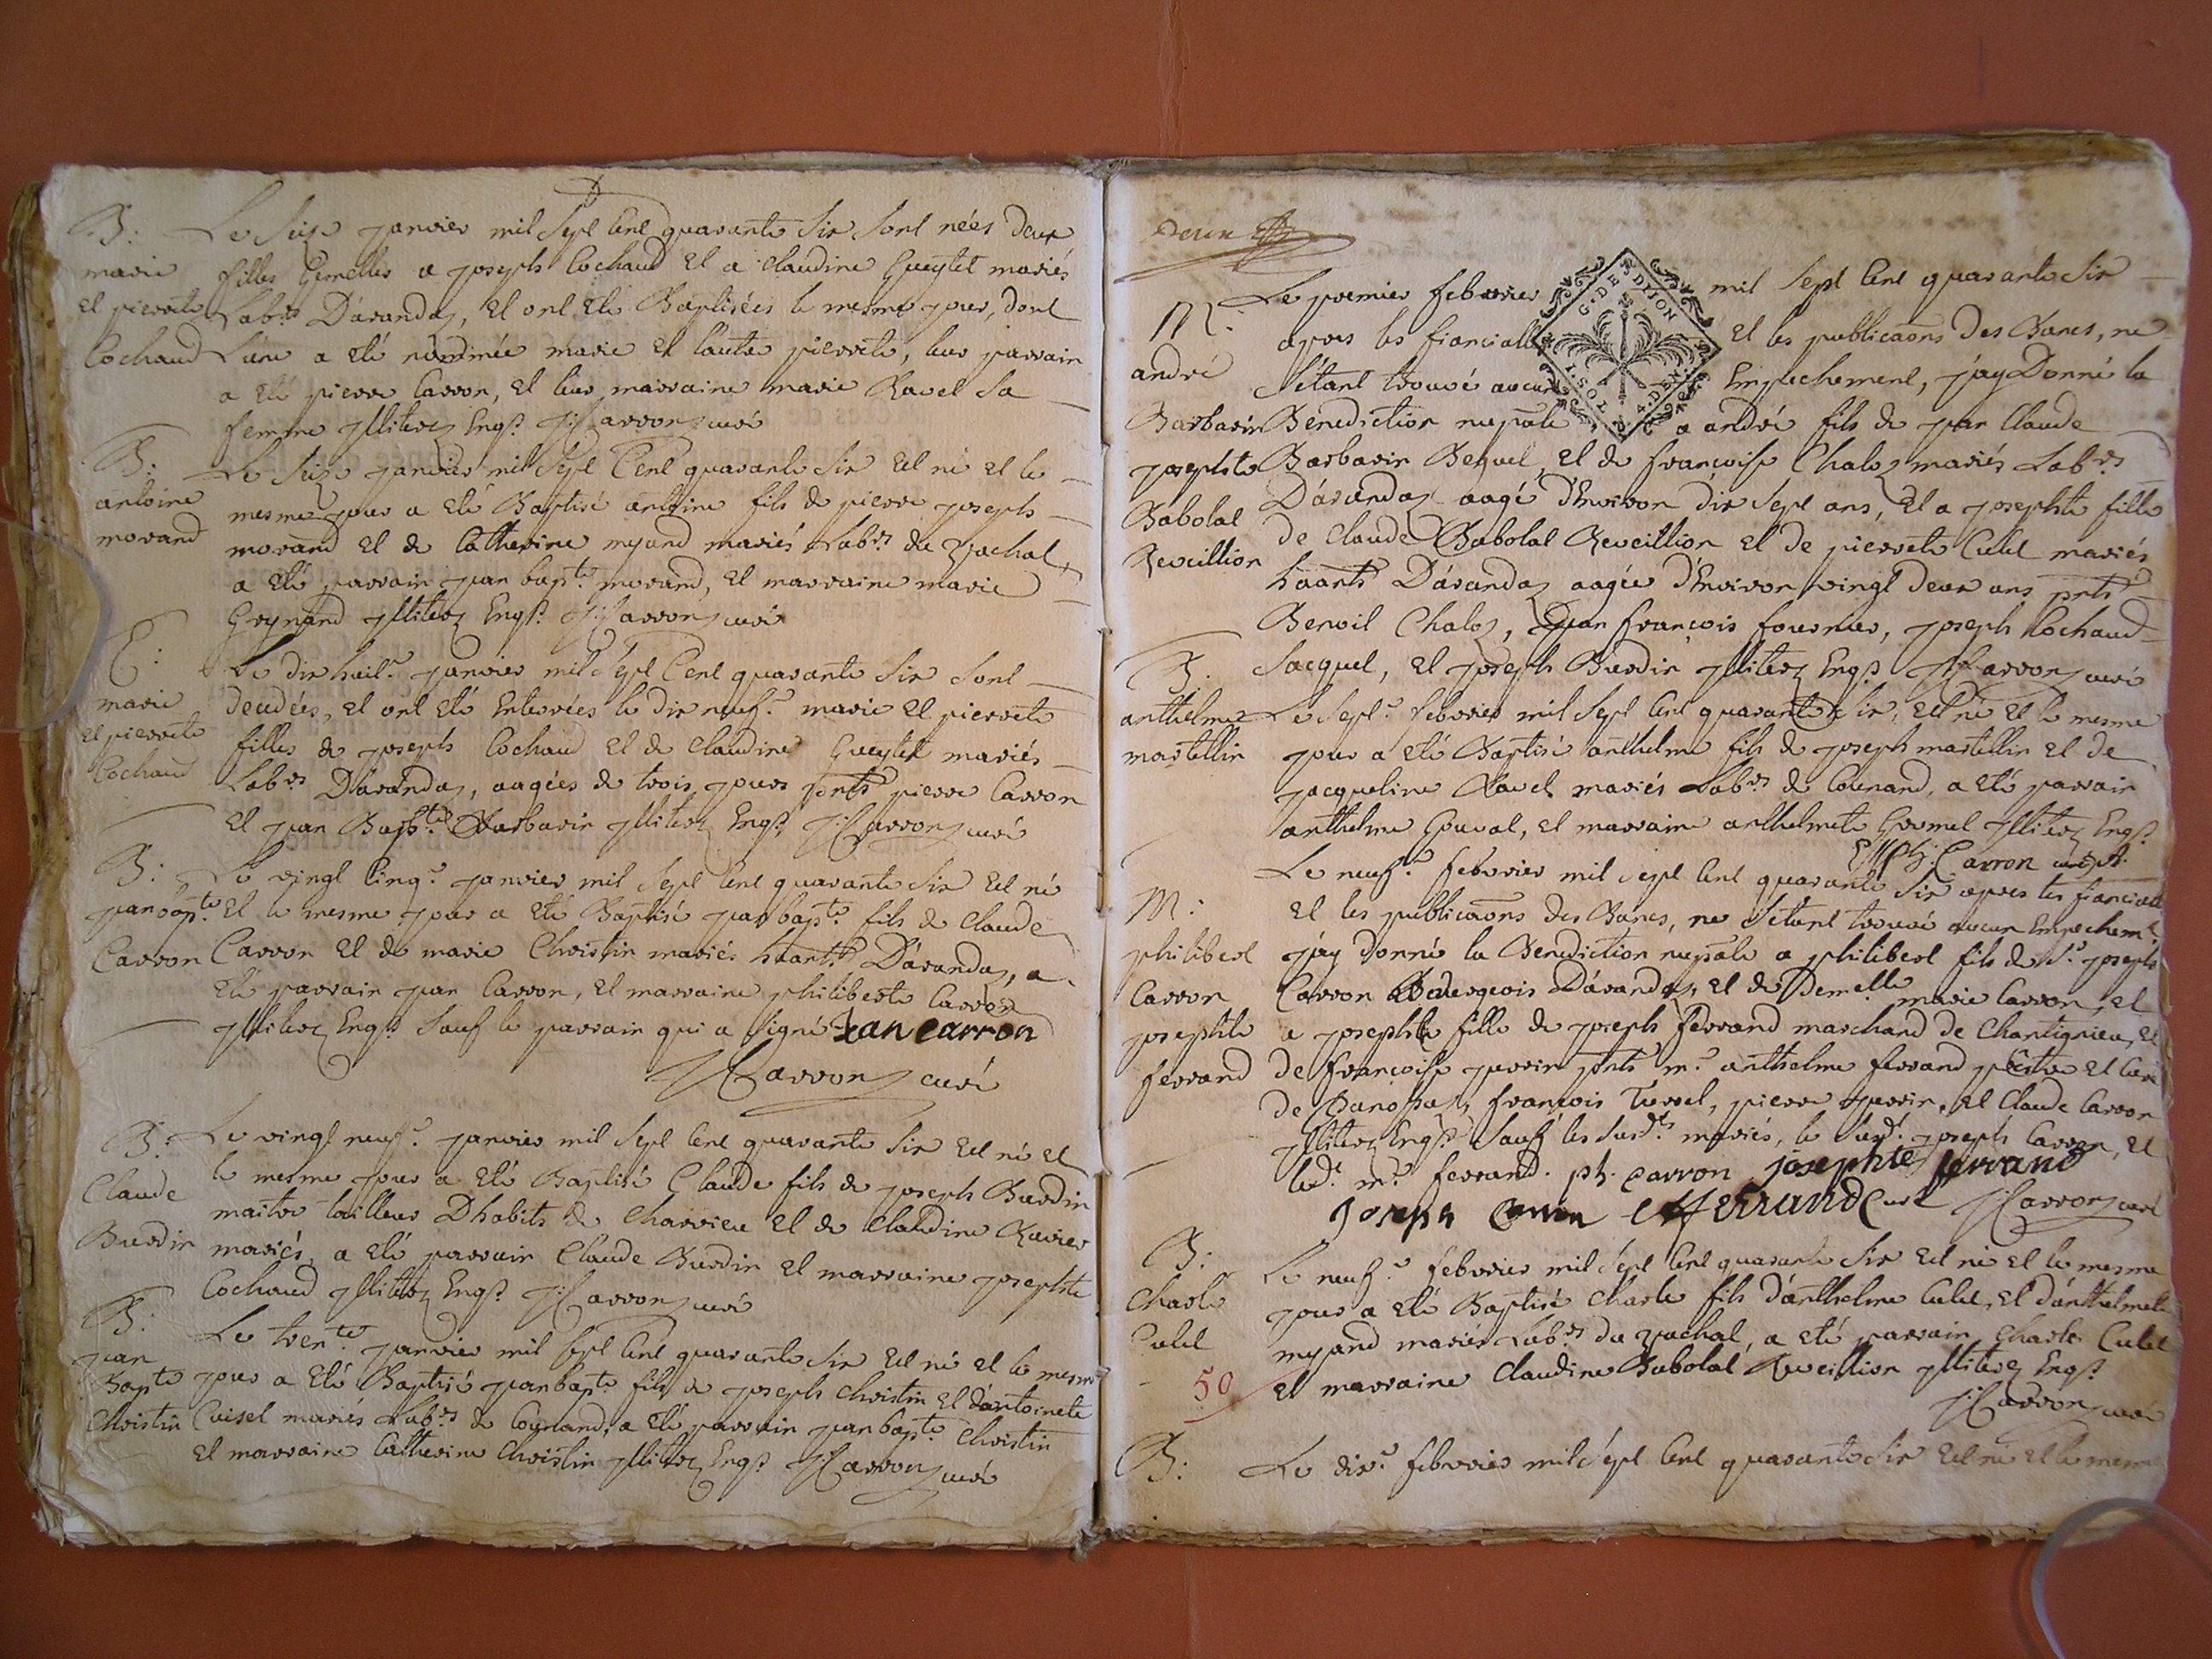 B:
marie
et pierrete
Cochaud
Le Seize janvier mil Sept Cent quarante Six Sont nées deux
filles Gemelles a joseph Cochaud et a claudine Gueytet mariés
Lab.rs D'arandaz, et ont été Baptisées le mesme jour, dont
L'une a eté nommée marie et l'autre pierrete, leur parrain
a eté pierre Carron, et leur marraine marie Ravel Sa
femme jllitterez Enq.s J: Carron curé
B:
antoine
morand
Le Seize janvier mil Sept Cent quarante Six Est né et le
mesme jour a eté Baptisé antoine fils de pierre joseph
morand et de Catherine myand mariés Lab.rs du
a eté parrain jean bap.te morand, et marraine marie
Greynand jllitterez Enq.s J: Carron curé
E:
marie
et pierrete
Cochaud
Le dix huit.e janvier mil Sept Cent quarante Six Sont
decedées, et ont eté Enterrées le dix neuf.e marie et pierrete
filles de joseph Cochaud et de Claudine Gueytet mariés
Lab.rs D'arandaz, aagées de trois jours pnts pierre Carron
et jean Bap.te Barbarin jllitterez Enq.s J: Carron curé
B:
jean bap.te
Carron
Le vingt Cinq.e janvier mil Sept Cent quarante Six Est né
et le mesme jour a eté Baptisé jean bap.te fils de Claude
Carron et de marie Christin mariés haants D'arandaz, a
eté parrain jean Carron, et marraine philiberte Carron
jllitterez Enq.s Sauf le parrain qui a Signé Jean carron
J: Carron curé
B:
Claude
Burdin
Le vingt neuf.e janvier mil Sept Cent quarante Six Est né et
le mesme jour a eté Baptisé Claude fils de joseph Burdin
maitre tailleur D'habits de Charvieu et de Claudine Ravier
mariés, a eté parrain Claude Burdin et marraine josephte
Cochaud jllitterez Enq.s J: Carron curé
B:
jean
Bapte
Christin
Le tren.te janvier mil Sept Cent quarante Six Est né et le mesme
jour a eté Baptisé jean bap.te fils de joseph Christin et d'antoinete
Cuisel mariés Lab.rs de Counand, a eté parrain jean bap.te Christin
et marraine Catherine Christin jllitterez Enq.s J: Carron curé
Deux
G. DE DIJON
M:
andré
Barbarin
josephte
Babolat
Reveillion
Le premier febvrier mil Sept Cent quarante Six
apres les fianciall et les publicaons des Bancs, ne
S'etant trouvé aucun Empechement, j'ay Donné la
Benediction nup.ale a andré fils de jean Claude
Barbarin Bequel et de françoise Chaloz mariés Lab.rs
D'arandaz aagé d'Environ dix Sept ans, Et a josephte fille
de Claude Babolat Reveillion et de pierrete Culet mariés
haants D'arandaz aagée d'Environ vingt deux ans pnts
Benoit Chaloz, jean françois fournier, joseph Cochaud
Jacquet, et joseph Burdin jllitterez Enq.s J: Carron curé
B:
anthelme
martellin
Le Sept.e febvrier mil Sept Cent quarante Six, Est né et le mesme
jour a eté Baptisé anthelme fils de joseph martellin et de
jacqueline Ravel mariés Lab.rs de Counand, a eté parrain
anthelme Gouval, et marraine anthelmete Gromel jllitterez Enq.s
J: Carron curé
M:
philibert
Carron
josephte
ferrand
Le neuf.e febvrier mil Sept Cent quarante Six apres les fianciall
et les publicaons des Bancs, ne S'etant trouvé aucun Empechem.t
j'ay donné la Benediction nup.ale a philibert fils de S.r joseph
Carron Bourgeois D'arandaz, et de Demelle marie Carron, et
a josephte fille de joseph ferrand marchand de Chantignieu, et
de françoise perrin pnts m.re anthelme ferrand prêtre et Curé
de françois Turrel, pierre perrin, et Claude Carron
jllitterez Enq.s Sauf les Susd.ts mariés, le Susd.t joseph Carron, et
led.t m.re ferrand. ph. carron josephte ferrand
Joseph Carron ferrand Curé J: Carron curé
B:
Charle
Culet
50
Le neuf.e febvrier mil Sept Cent quarante Six Est né et le mesme
jour a eté Baptisé Charle fils d'anthelme Culet, et d'anthelmete
myand mariés Lab.rs du a eté parrain Charle Culet
et marraine Claudine Babolat Reveillion jllitterez Enq.s
J: Carron curé
B:
Le dix.e febvrier mil Sept Cent quarante Six Est né et le mesme